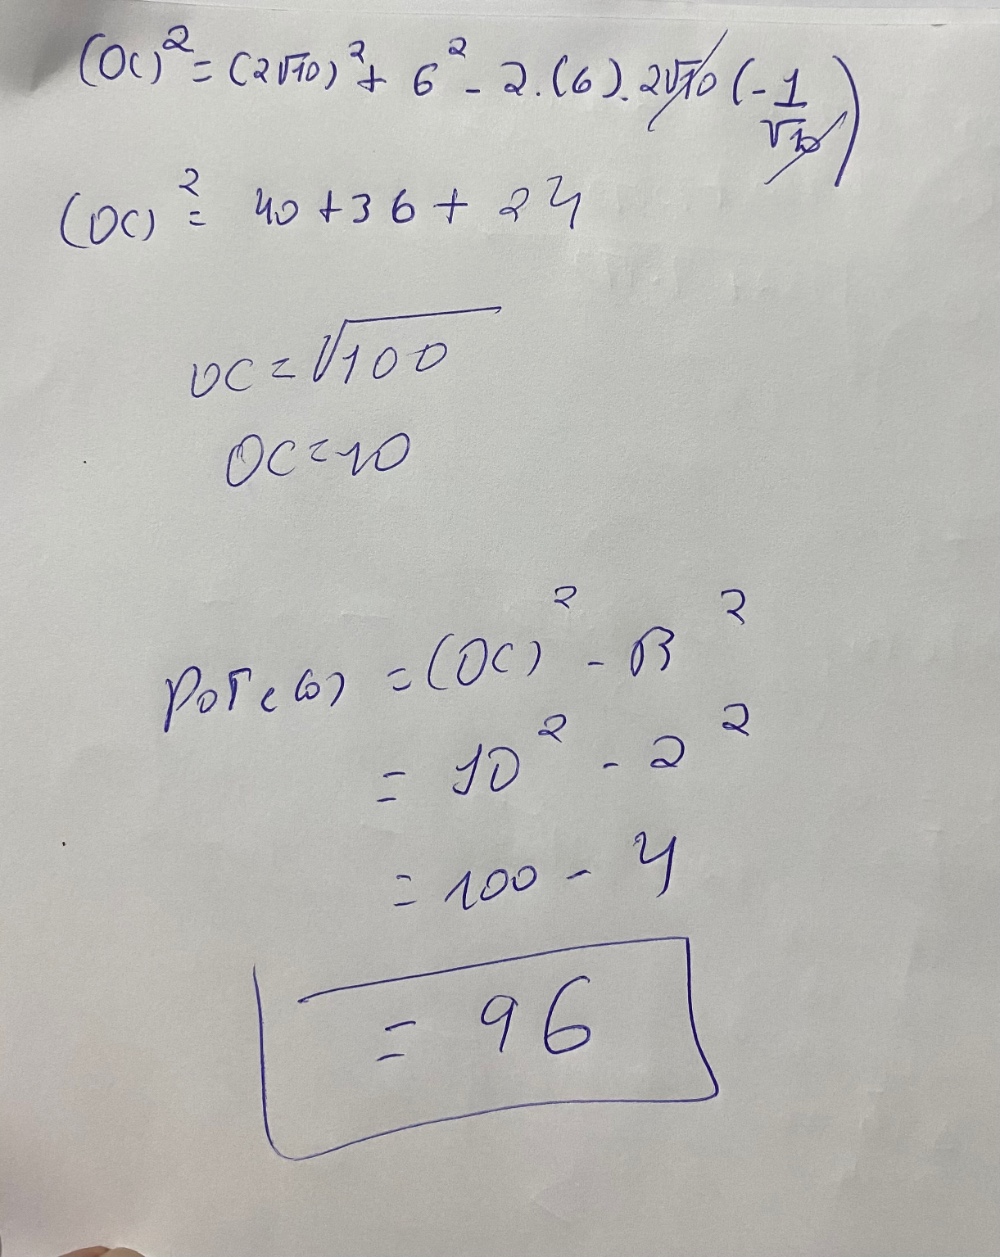 (OC)² = (2√10)² + 6² - 2.(6).2√10 (-1/√10)
(OC)² = 40 + 36 + 24
OC = √100
OC = 10
PoTc(o) = (OC)² - R²
= 10² - 2²
= 100 - 4
= 96